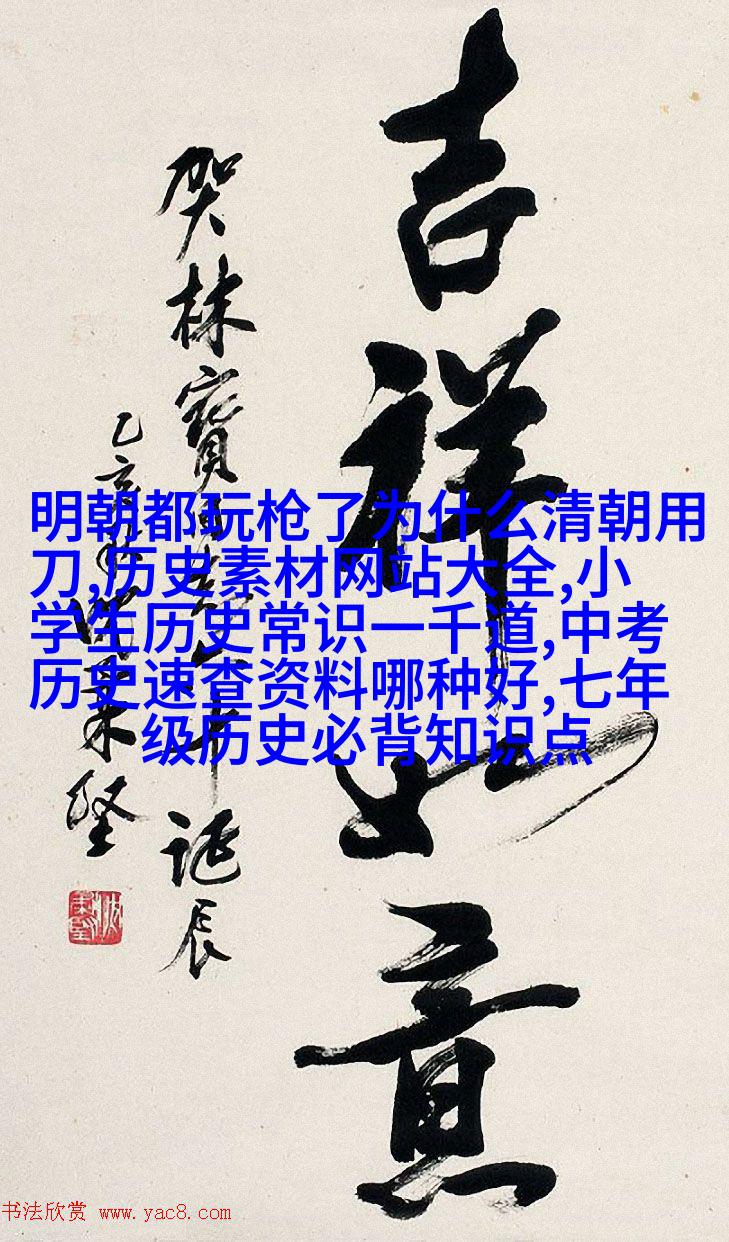 吉祥如意
贺林宝
诞辰
乙亥
明朝都玩枪了为什么清朝用
刀,历史素材网站大全,小
学生历史常识一千道,中考
历史速查资料哪种好,七年
级历史必背知识点
书法欣赏 www.yac8.com